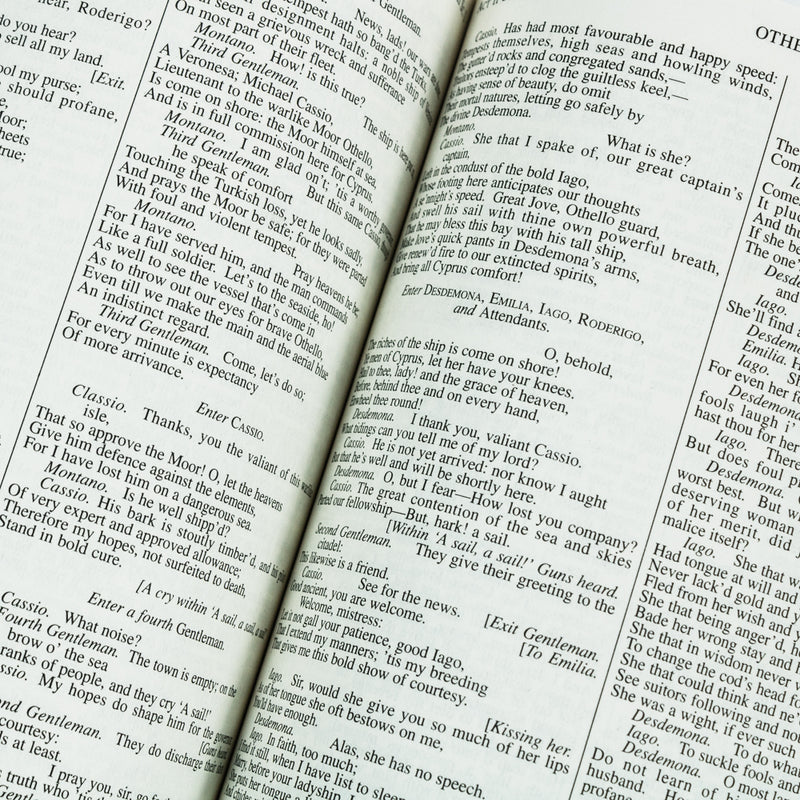 hear, Roderigo?
do you hear?
sell all my land.
[Exit.
ool my purse;
should profane,
e,
oor;
heets
true;
News, lads!
Gentleman.
empest hath so bang'd the Turks,
designment halts: a noble ship of
en seen a grievous wreck and sufferance
On most part of their fleet.
Montano. How! is this true?
Third Gentleman. The ship is here
A Veronesa; Michael Cassio,
Lieutenant to the warlike Moor Othello,
Is come on shore: the Moor himself at sea,
And is in full commission here for Cyprus.
Montano. I am glad on't; 'tis a worthy
Third Gentleman. But this same Cassio,
he speak of comfort
Touching the Turkish loss, yet he looks sadly
And prays the Moor be safe; for they were parted
With foul and violent tempest.
Montano. Pray heavens he be;
For I have served him, and the man commands
Like a full soldier. Let's to the seaside, ho!
As well to see the vessel that's come in
As to throw out our eyes for brave Othello,
Even till we make the main and the aerial blue
An indistinct regard.
Third Gentleman. Come, let's do so;
For every minute is expectancy
Of more arrivance.
Enter CASSIO.
Classio. Thanks, you the valiant of this
isle,
That so approve the Moor! O, let the heavens
Give him defence against the elements,
For I have lost him on a dangerous sea.
Montano. Is he well shipp'd?
Cassio. His bark is stoutly timber'd, and his
Of very expert and approved allowance;
Therefore my hopes, not surfeited to death,
Stand in bold cure.
[A cry within 'A sail, a sail, a
Enter a fourth Gentleman.
Cassio. What noise?
Fourth Gentleman. The town is empty; on the
brow o' the sea
ranks of people, and they cry 'A sail!'
ssio. My hopes do shape him for the
[Guns
nd Gentleman. They do discharge their
courtesy:
s at least.
I pray you, sir, go
truth who 'tis
Cassio. Has had most favourable and happy speed:
Tempests themselves, high seas and howling winds,
The gutter'd rocks and congregated sands,—
Traitors ensteep'd to clog the guiltless keel,—
As having sense of beauty, do omit
Their mortal natures, letting go safely by
The divine Desdemona.
Montano. What is she?
Cassio. She that I spake of, our great captain's
captain,
Left in the condust of the bold Iago,
Whose footing here anticipates our thoughts
A se'nnight's speed. Great Jove, Othello guard,
And swell his sail with thine own powerful breath,
That he may bless this bay with his tall ship,
Make love's quick pants in Desdemona's arms,
Give renew'd fire to our extincted spirits,
And bring all Cyprus comfort!
Enter DESDEMONA, EMILIA, IAGO, RODERIGO,
and Attendants.
O, behold,
The riches of the ship is come on shore!
Ye men of Cyprus, let her have your knees.
Hail to thee, lady! and the grace of heaven,
Before, behind thee and on every hand,
Enwheel thee round!
Desdemona. I thank you, valiant Cassio.
What tidings can you tell me of my lord?
Cassio. He is not yet arrived: nor know I aught
But that he's well and will be shortly here.
Desdemona. O, but I fear—How lost you company?
Cassio. The great contention of the sea and skies
Parted our fellowship—But, hark! a sail.
[Within 'A sail, a sail!' Guns heard.
Second Gentleman. They give their greeting to the
citadel:
This likewise is a friend.
Cassio. See for the news.
[Exit Gentleman.
Good ancient, you are welcome.
[To Emilia.
Welcome, mistress:
Let it not gall your patience, good Iago,
That I extend my manners; 'tis my breeding
That gives me this bold show of courtesy.
[Kissing her.
Iago. Sir, would she give you so much of her lips
As of her tongue she oft bestows on me,
You'ld have enough.
Desdemona. Alas, she has no speech.
Iago. In faith, too much;
I find it still, when I have list to sleep
Marry, before your ladyship, I
She puts her tongue a
And chides
OTHE
The
Com
Ia
Come
It pluc
And thu
If she be
The one'
Desd
and
Iago.
She'll find
Desdem
Emilia. H
Iago. Sh
For even her f
Desdemona
fools laugh i'
hast thou for her
Iago. There
But does foul p
Desdemona.
worst best. But w
deserving woman
of her merit, did
malice itself?
Iago. She that w
Had tongue at will and
Never lack'd gold and y
Fled from her wish and y
She that being anger'd, h
Bade her wrong stay and h
She that in wisdom never w
To change the cod's head fo
She that could think and ne'
See suitors following and no
She was a wight, if ever such
Desdemona. To do what
Iago. To suckle fools and
Desdemona. O most la
Do not learn of hi
husband. Ho
profane